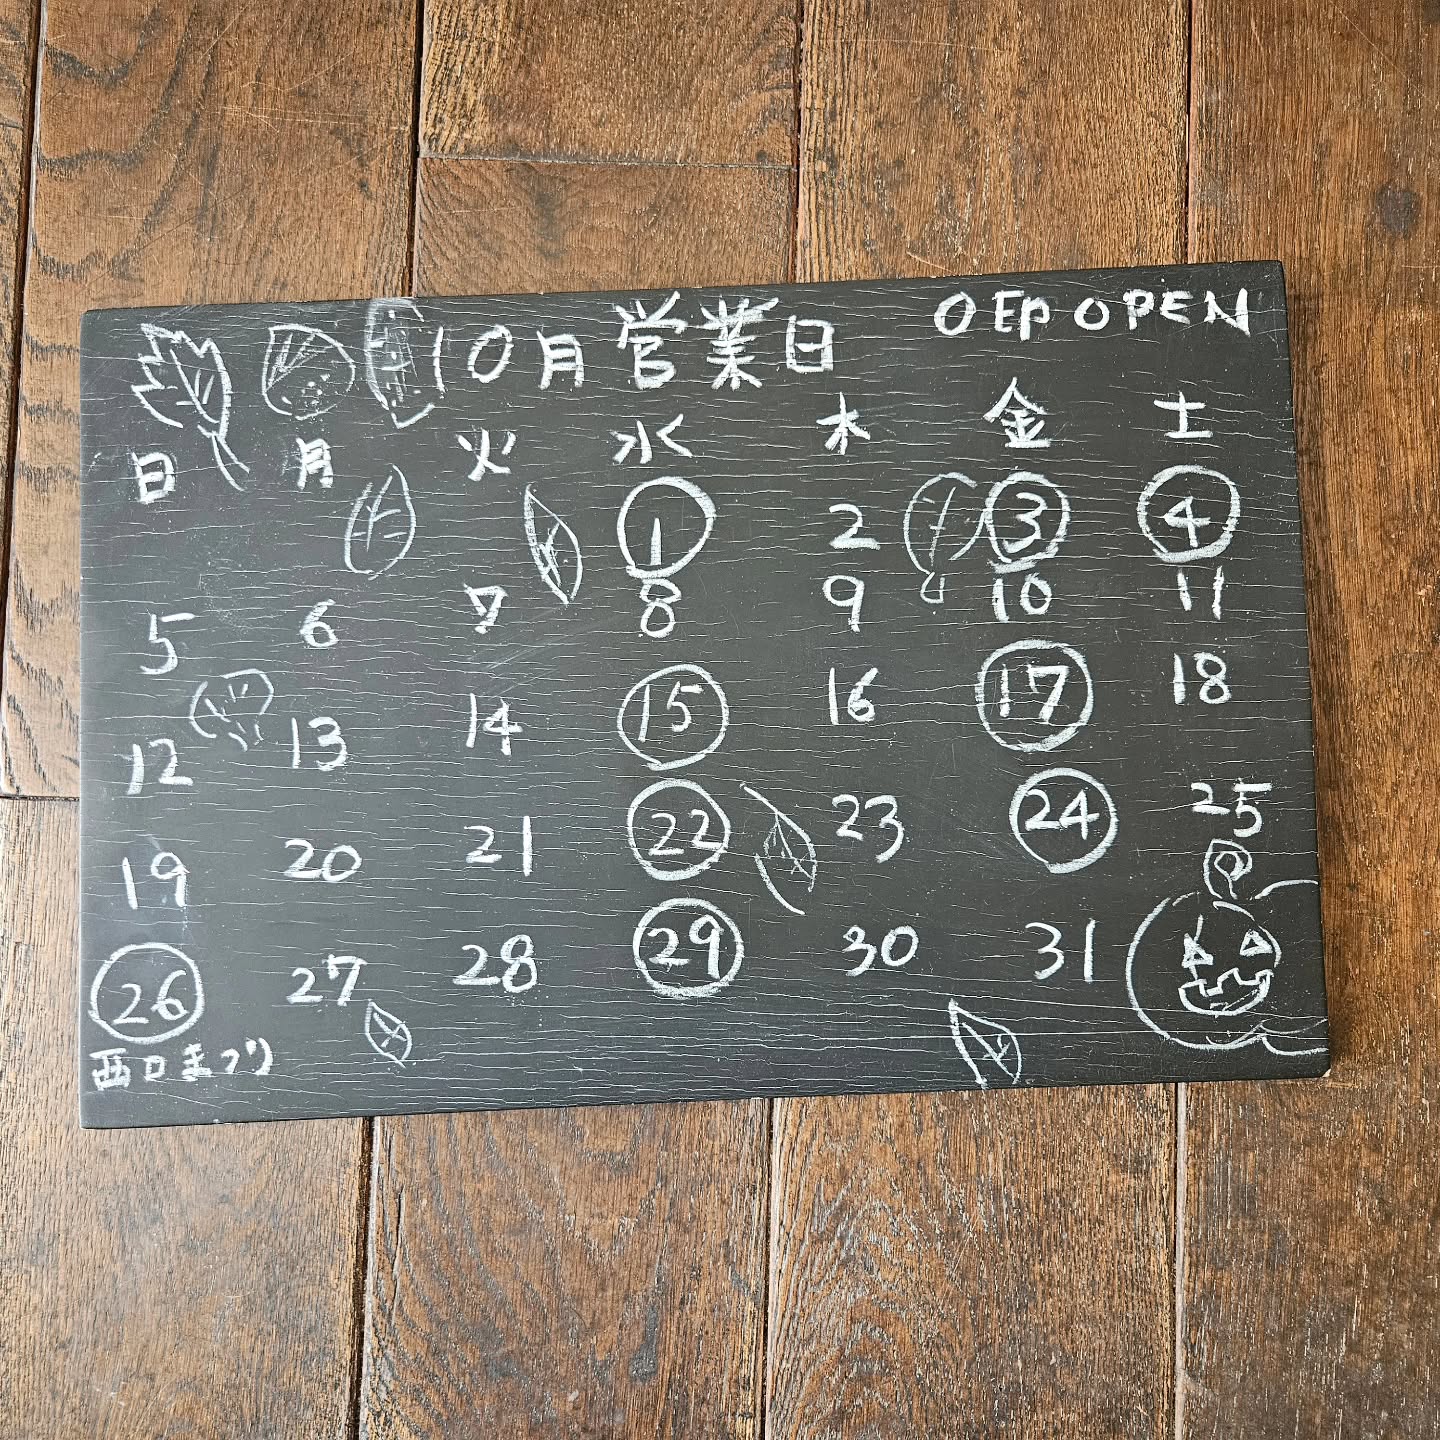 10月営業日 ○印OPEN
日 月 火 水 木 金 土
1 2 3 4
5 6 7 8 9 10 11
12 13 14 15 16 17 18
19 20 21 22 23 24 25
26 27 28 29 30 31
西口まつり